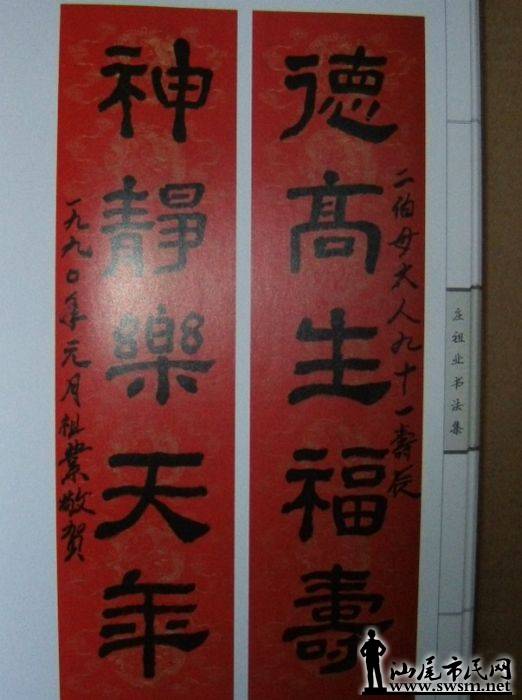 德高生福壽
二伯母大人九十一壽辰
神靜樂天年
一九九〇年元月祖業敬賀
庄祖业书法集
汕尾市民网
www.swsm.net